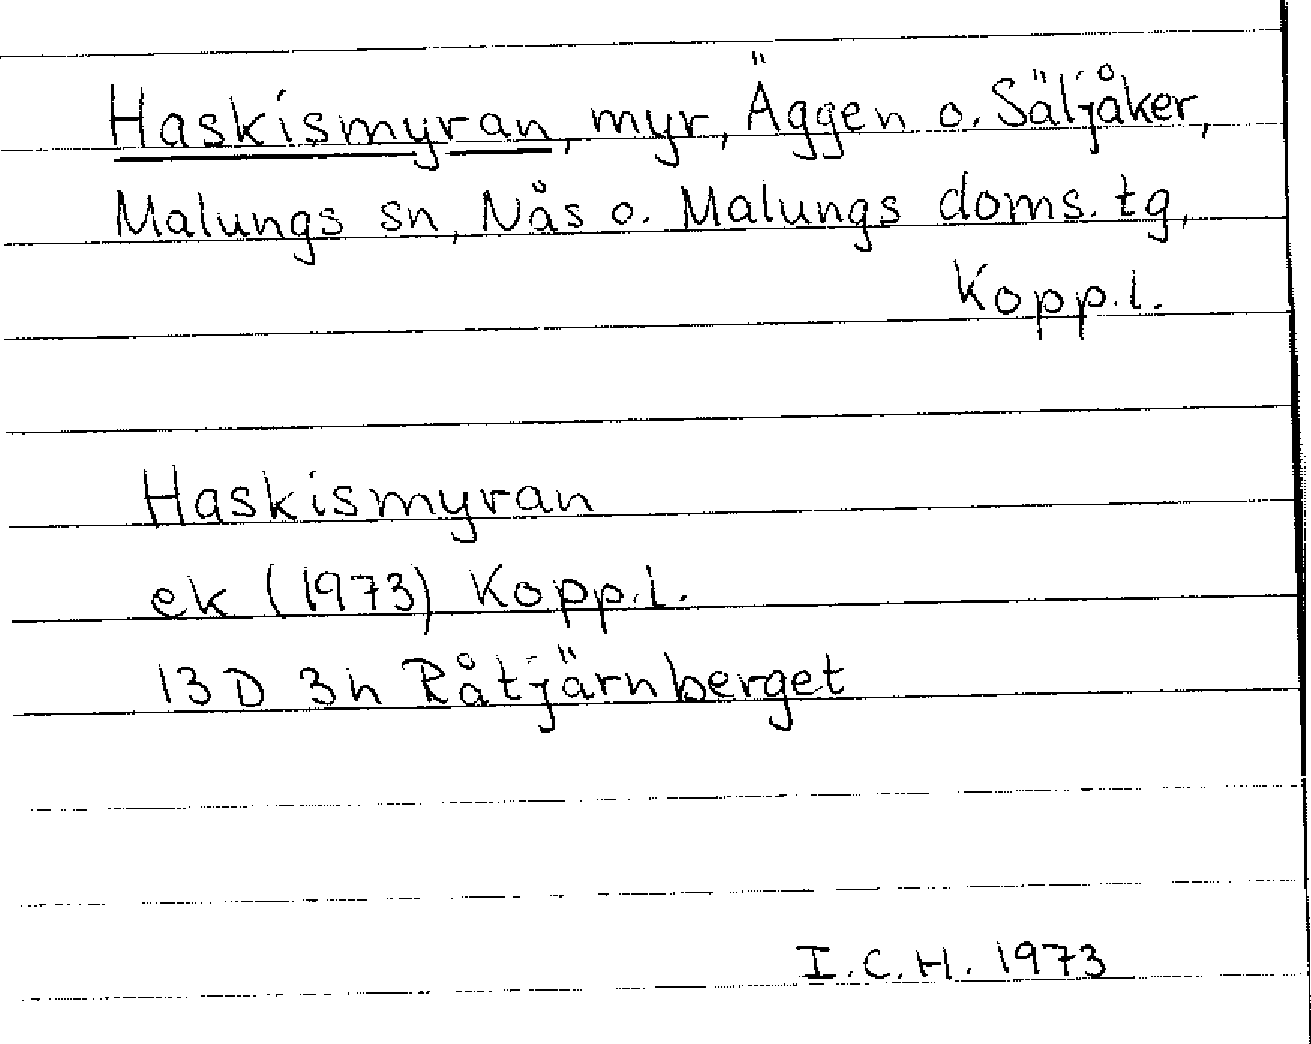 Haskismyran, myr, Äggen o. Säljåker,
Malungs sn, Nås o. Malungs doms. tg,
Kopp. l.
Haskismyran
ek (1973) Kopp. l.
13D 3h Råtjärnberget
I.C.H. 1973